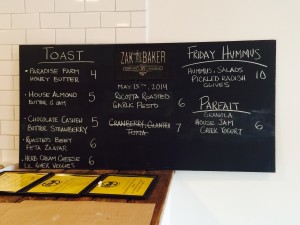 TOAST
• PARADISE FARM
HONEY BUTTER 4
• HOUSE ALMOND
BUTTER & JAM 5
• CHOCOLATE CASHEW
BUTTER STRAWBERRY 5
• ROASTED BEET
FETA ZA'ATAR 6
• HERB CREAM CHEESE
LIL GREEN VEGGIES 6
ZAK THE BAKER
MAY 15TH, 2014
RICOTTA ROASTED
GARLIC PESTO 6
CRANBERRY, CILANTRO
TUNA 7
FRIDAY HUMMUS
HUMMUS, SALADS
PICKLED RADISH 10
OLIVES
PARFAIT
GRANOLA
HOUSE JAM 6
GREEK YOGURT